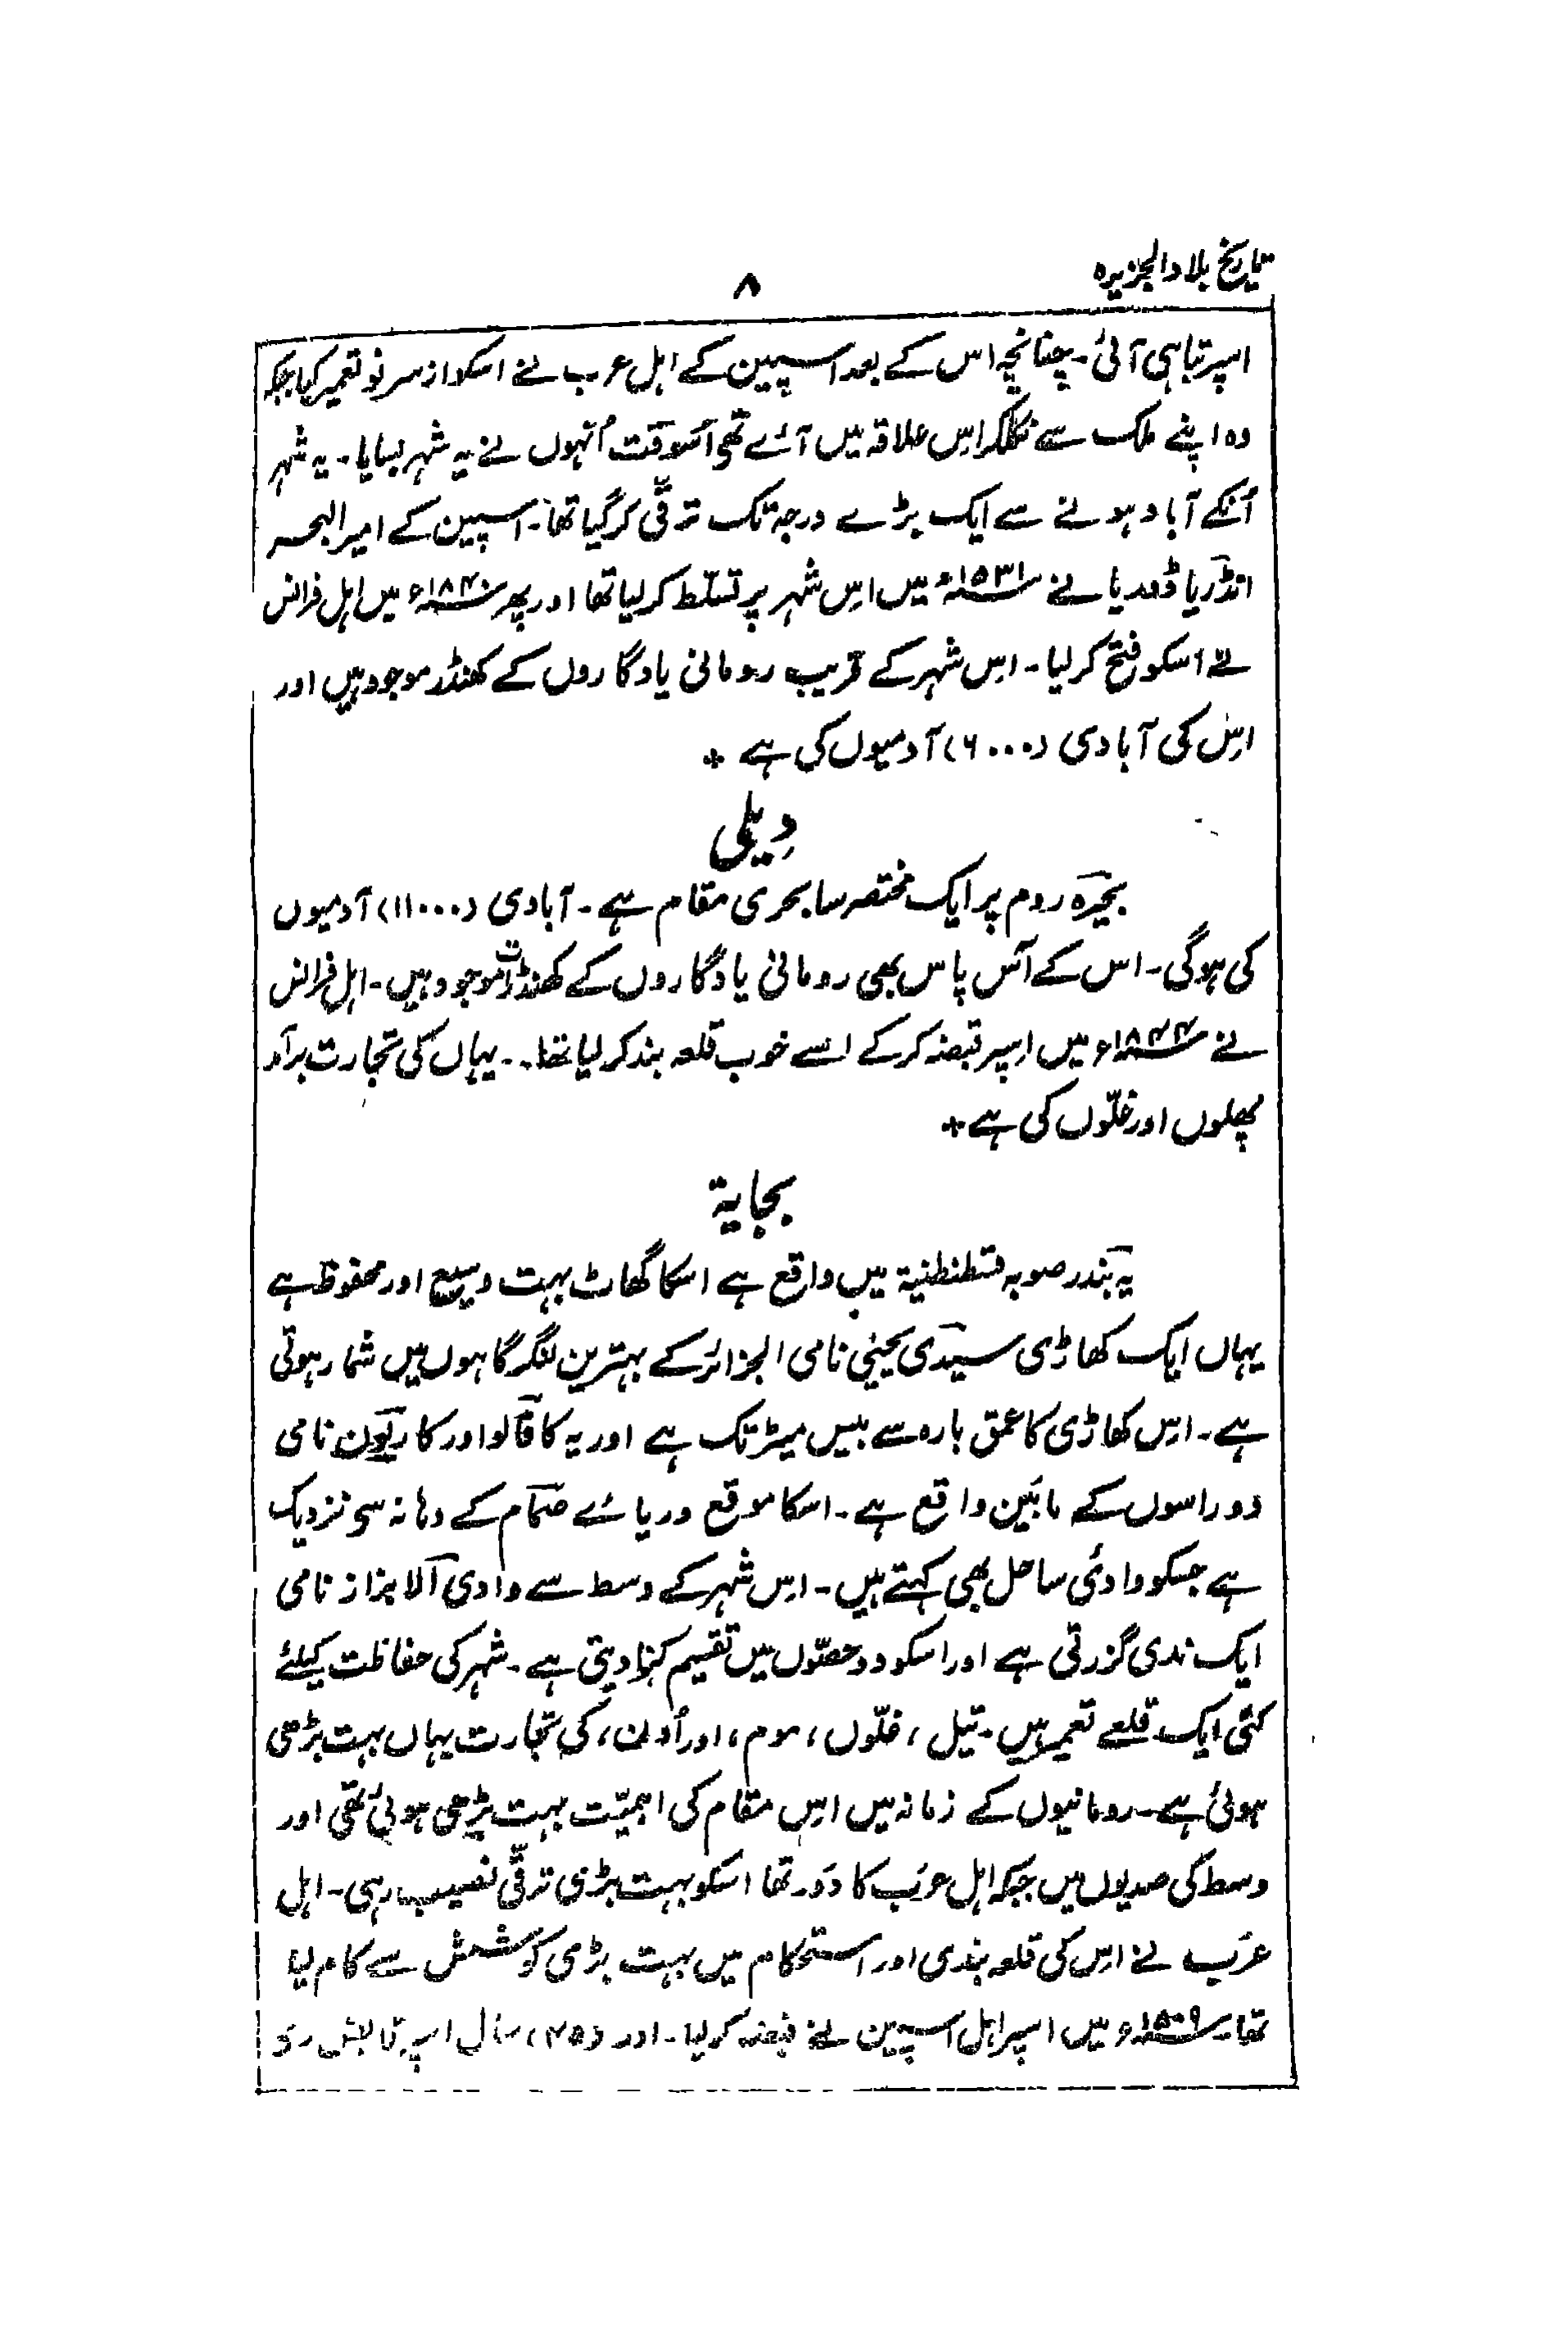 تاریخ بلاد الجزیرہ
۸
اسپر تباہی آئی۔ چنانچہ اس کے بعد اسپین کے اہل عرب نے اسکو از سر نو تعمیر کیا جبکہ
وہ اپنے ملک سے نکلکر اِس علاقہ میں آئے تھے اُسوقت اُنہوں نے یہ شہر بسایا۔ یہ شہر
اُنکے آباد ہونے سے ایک بڑے درجہ تک ترقّی کر گیا تھا۔ اسپین کے امیر البحر
انڈریا ڈوریا نے ۱۵۳۱ء میں اِس شہر پر تسلّط کر لیا تھا اور پھر ۱۸۴۰ء میں اہل فرانس
نے اسکو فتح کر لیا۔ اِس شہر کے قریب رومانی یادگاروں کے کھنڈر موجود ہیں اور
اِس کی آبادی (۶۰۰۰) آدمیوں کی ہے ٭
دِیلی
بحیرہ روم پر ایک مختصر سا بحری مقام ہے۔ آبادی (۱۱۰۰۰) آدمیوں
کی ہوگی۔ اس کے آس پاس بھی رومانی یادگاروں کے کھنڈرات موجود ہیں۔ اہل فرانس
نے ۱۸۴۴ء میں اسپر قبضہ کرکے اسے خوب قلعہ بند کر لیا تھا۔ یہاں کی تجارت برآمد
پھلوں اور غلّوں کی ہے ٭
بجایۃ
یہ بندر صوبہ قسطنطنیۃ میں واقع ہے اسکا گھاٹ بہت وسیع اور محفوظ ہے
یہاں ایک کھاڑی سیدی یحییٰ نامی الجزائر کے بہترین لنگر گاہوں میں شمار ہوتی
ہے۔ اِس کھاڑی کا عمق بارہ سے بیس میٹر تک ہے اور یہ کاقالو اور کاربون نامی
دو راسوں کے مابَین واقع ہے۔ اسکا موقع دریائے صمّام کے دہانہ سے نزدیک
ہے جسکو وادئی ساحل بھی کہتے ہیں۔ اِس شہر کے وسط سے وادی آلابزاز نامی
ایک ندی گزرتی ہے اور اسکو دو حصّوں میں تقسیم کر دیتی ہے۔ شہر کی حفاظت کیلئے
کئی ایک قلعے تعمیر ہیں۔ تیل، غلّوں، موم، اور اُون، کی تجارت یہاں بہت بڑھی
ہوئی ہے۔ رومانیوں کے زمانہ میں اِس مقام کی اہمیّت بہت بڑھی ہوئی تھی اور
وسط کی صدیوں میں جبکہ اہل عرَب کا دَور تھا اسکو بہت بڑی ترقّی نصیب رہی۔ اہل
عرَب نے اِس کی قلعہ بندی اور استحکام میں بہت بڑی کوشش سے کام لیا
تھا۔ ۱۵۰۹ء میں اسپر اہل اسپین نے قبضہ کر لیا۔ اور (۴۵) سال اسپر قابض رہی